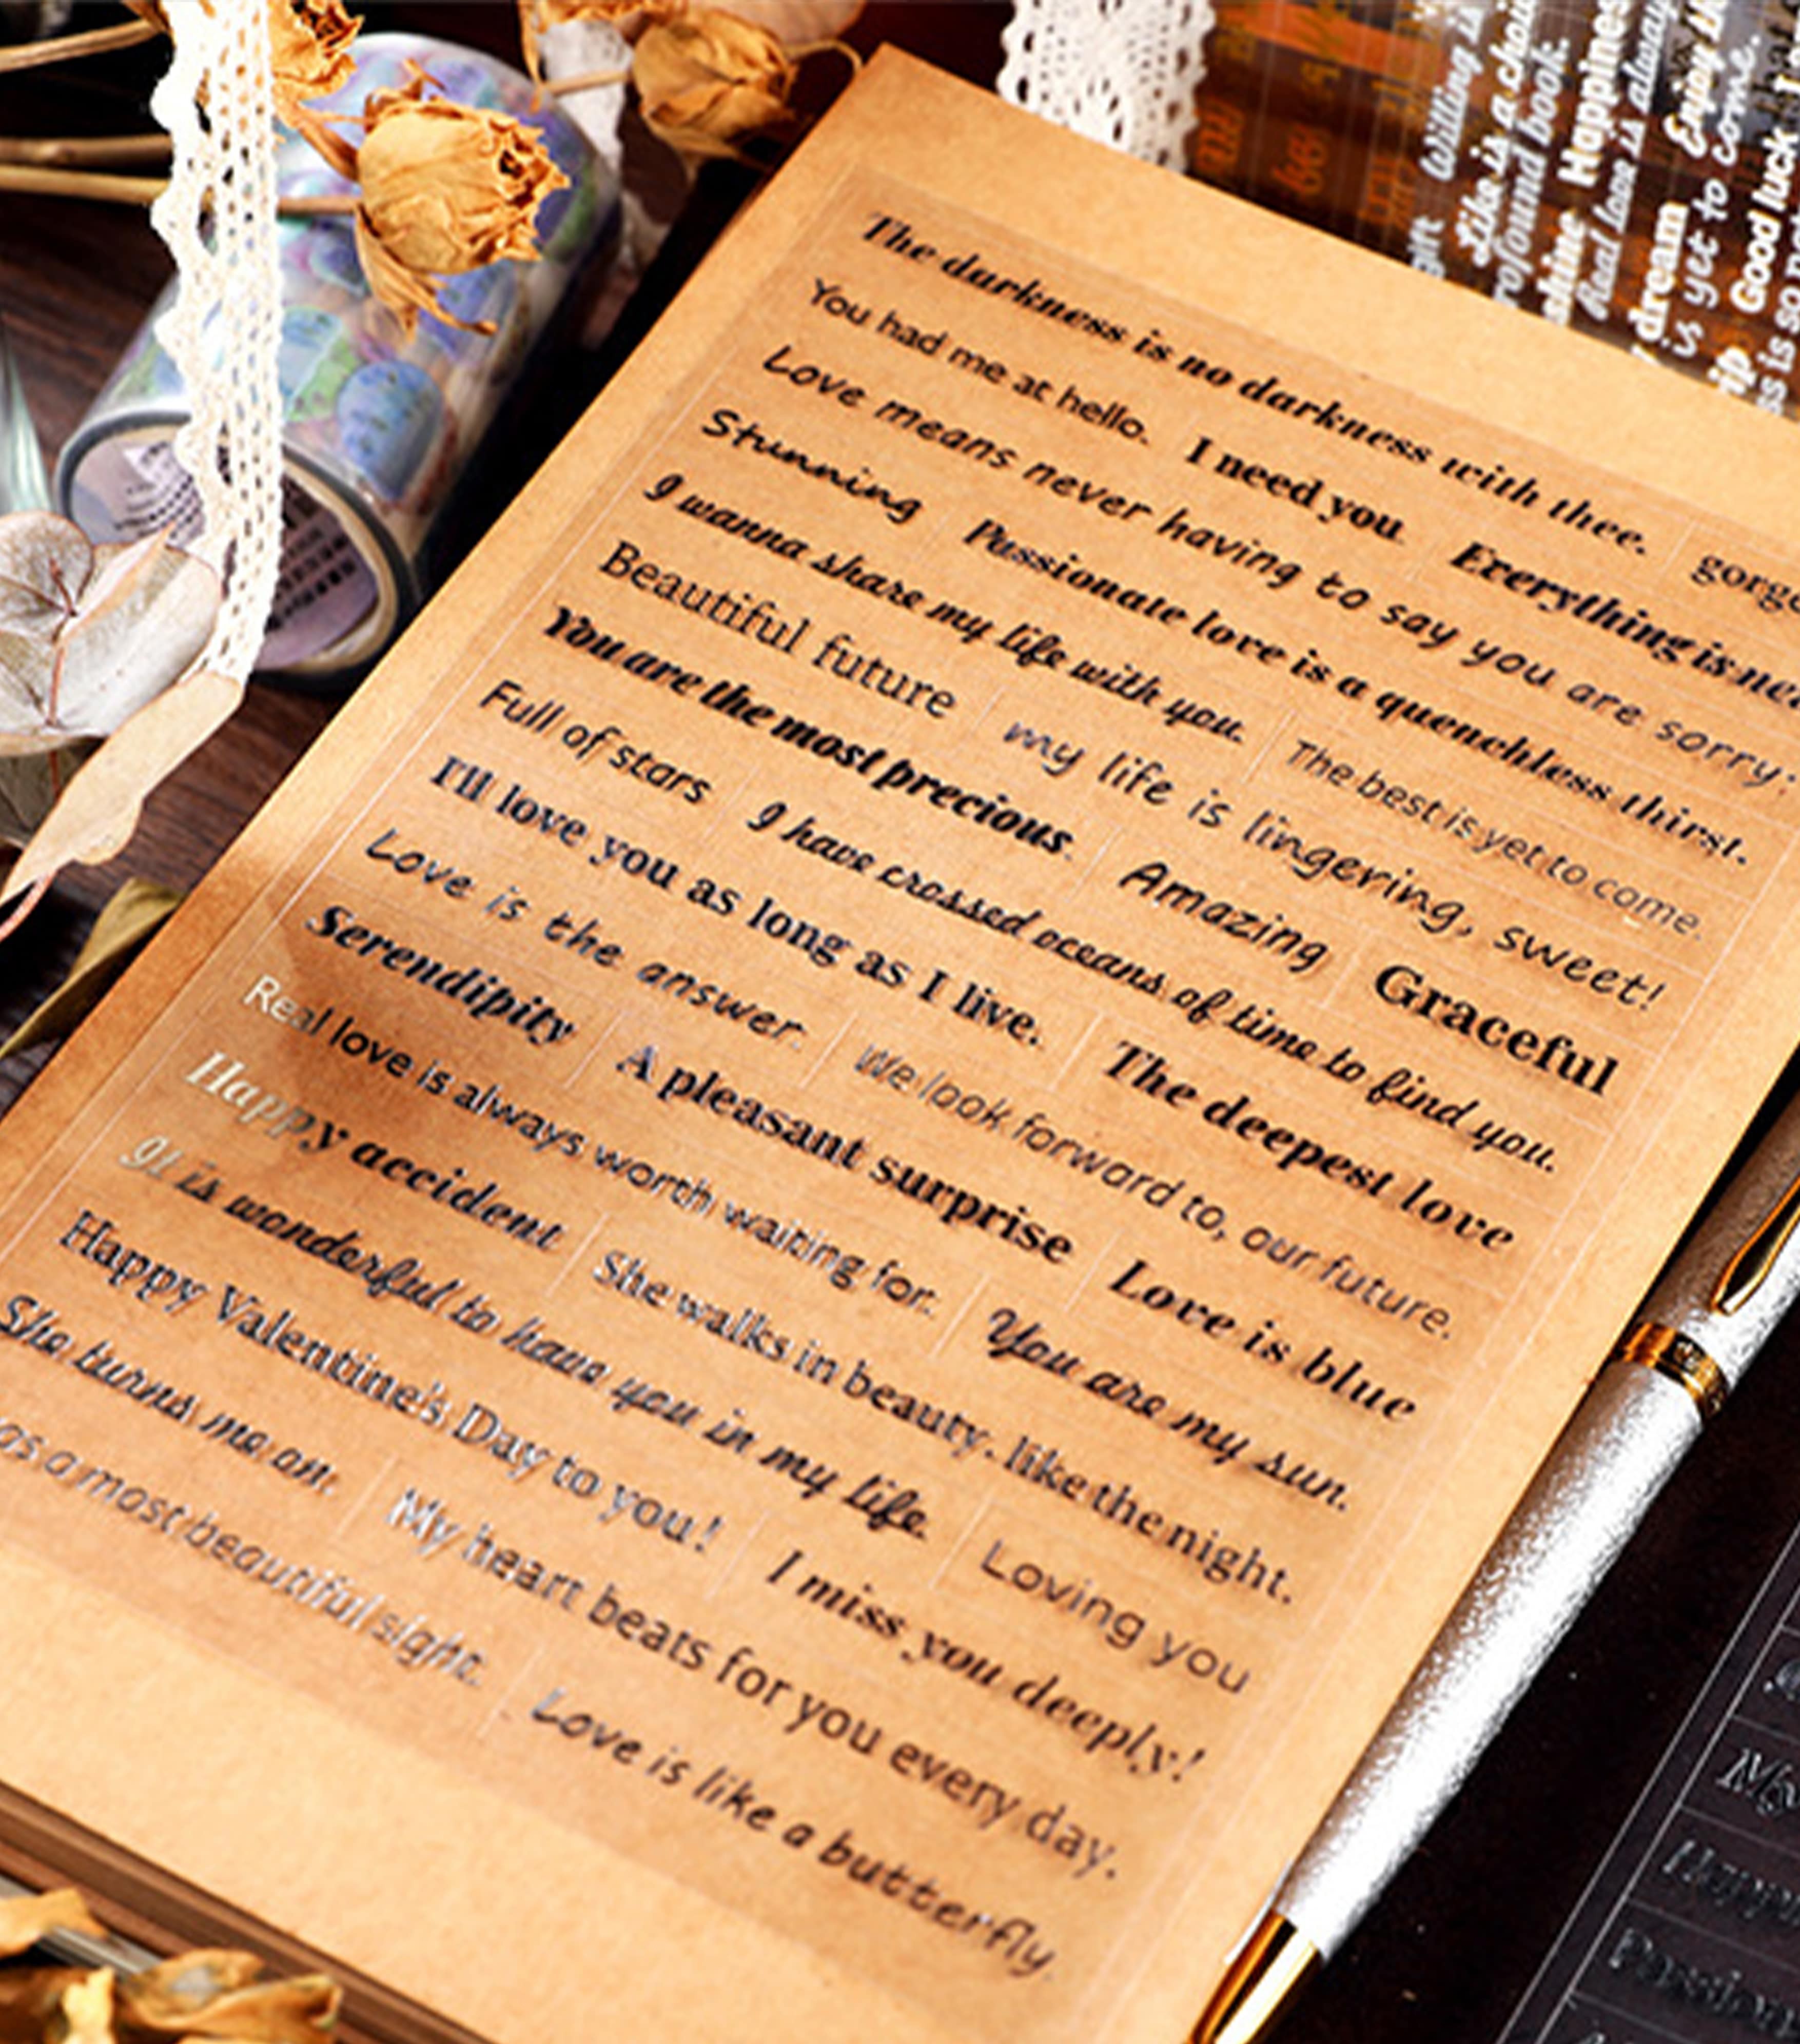 The darkness is no darkness with thee.
You had me at hello. I need you. Everything is
Love means never having to say you are sorry.
Stunning Passionate love is a quenchless thirst.
I wanna share my life with you. The best is yet to come.
Beautiful future my life is lingering, sweet!
You are the most precious. Amazing Graceful
Full of stars I have crossed oceans of time to find you.
I'll love you as long as I live. The deepest love
Love is the answer. We look forward to, our future.
Serendipity A pleasant surprise Love is blue
Real love is always worth waiting for. You are my sun.
Happy accident She walks in beauty. like the night.
It is wonderful to have you in my life. Loving you
Happy Valentine's Day to you! I miss you deeply!
She turns me on. My heart beats for you every day.
as a most beautiful sight. Love is like a butterfly.
Willing
Life is a
profound book.
Happiness
And love is always
dream Enjoy
is yet to come.
Good luck
is so
My